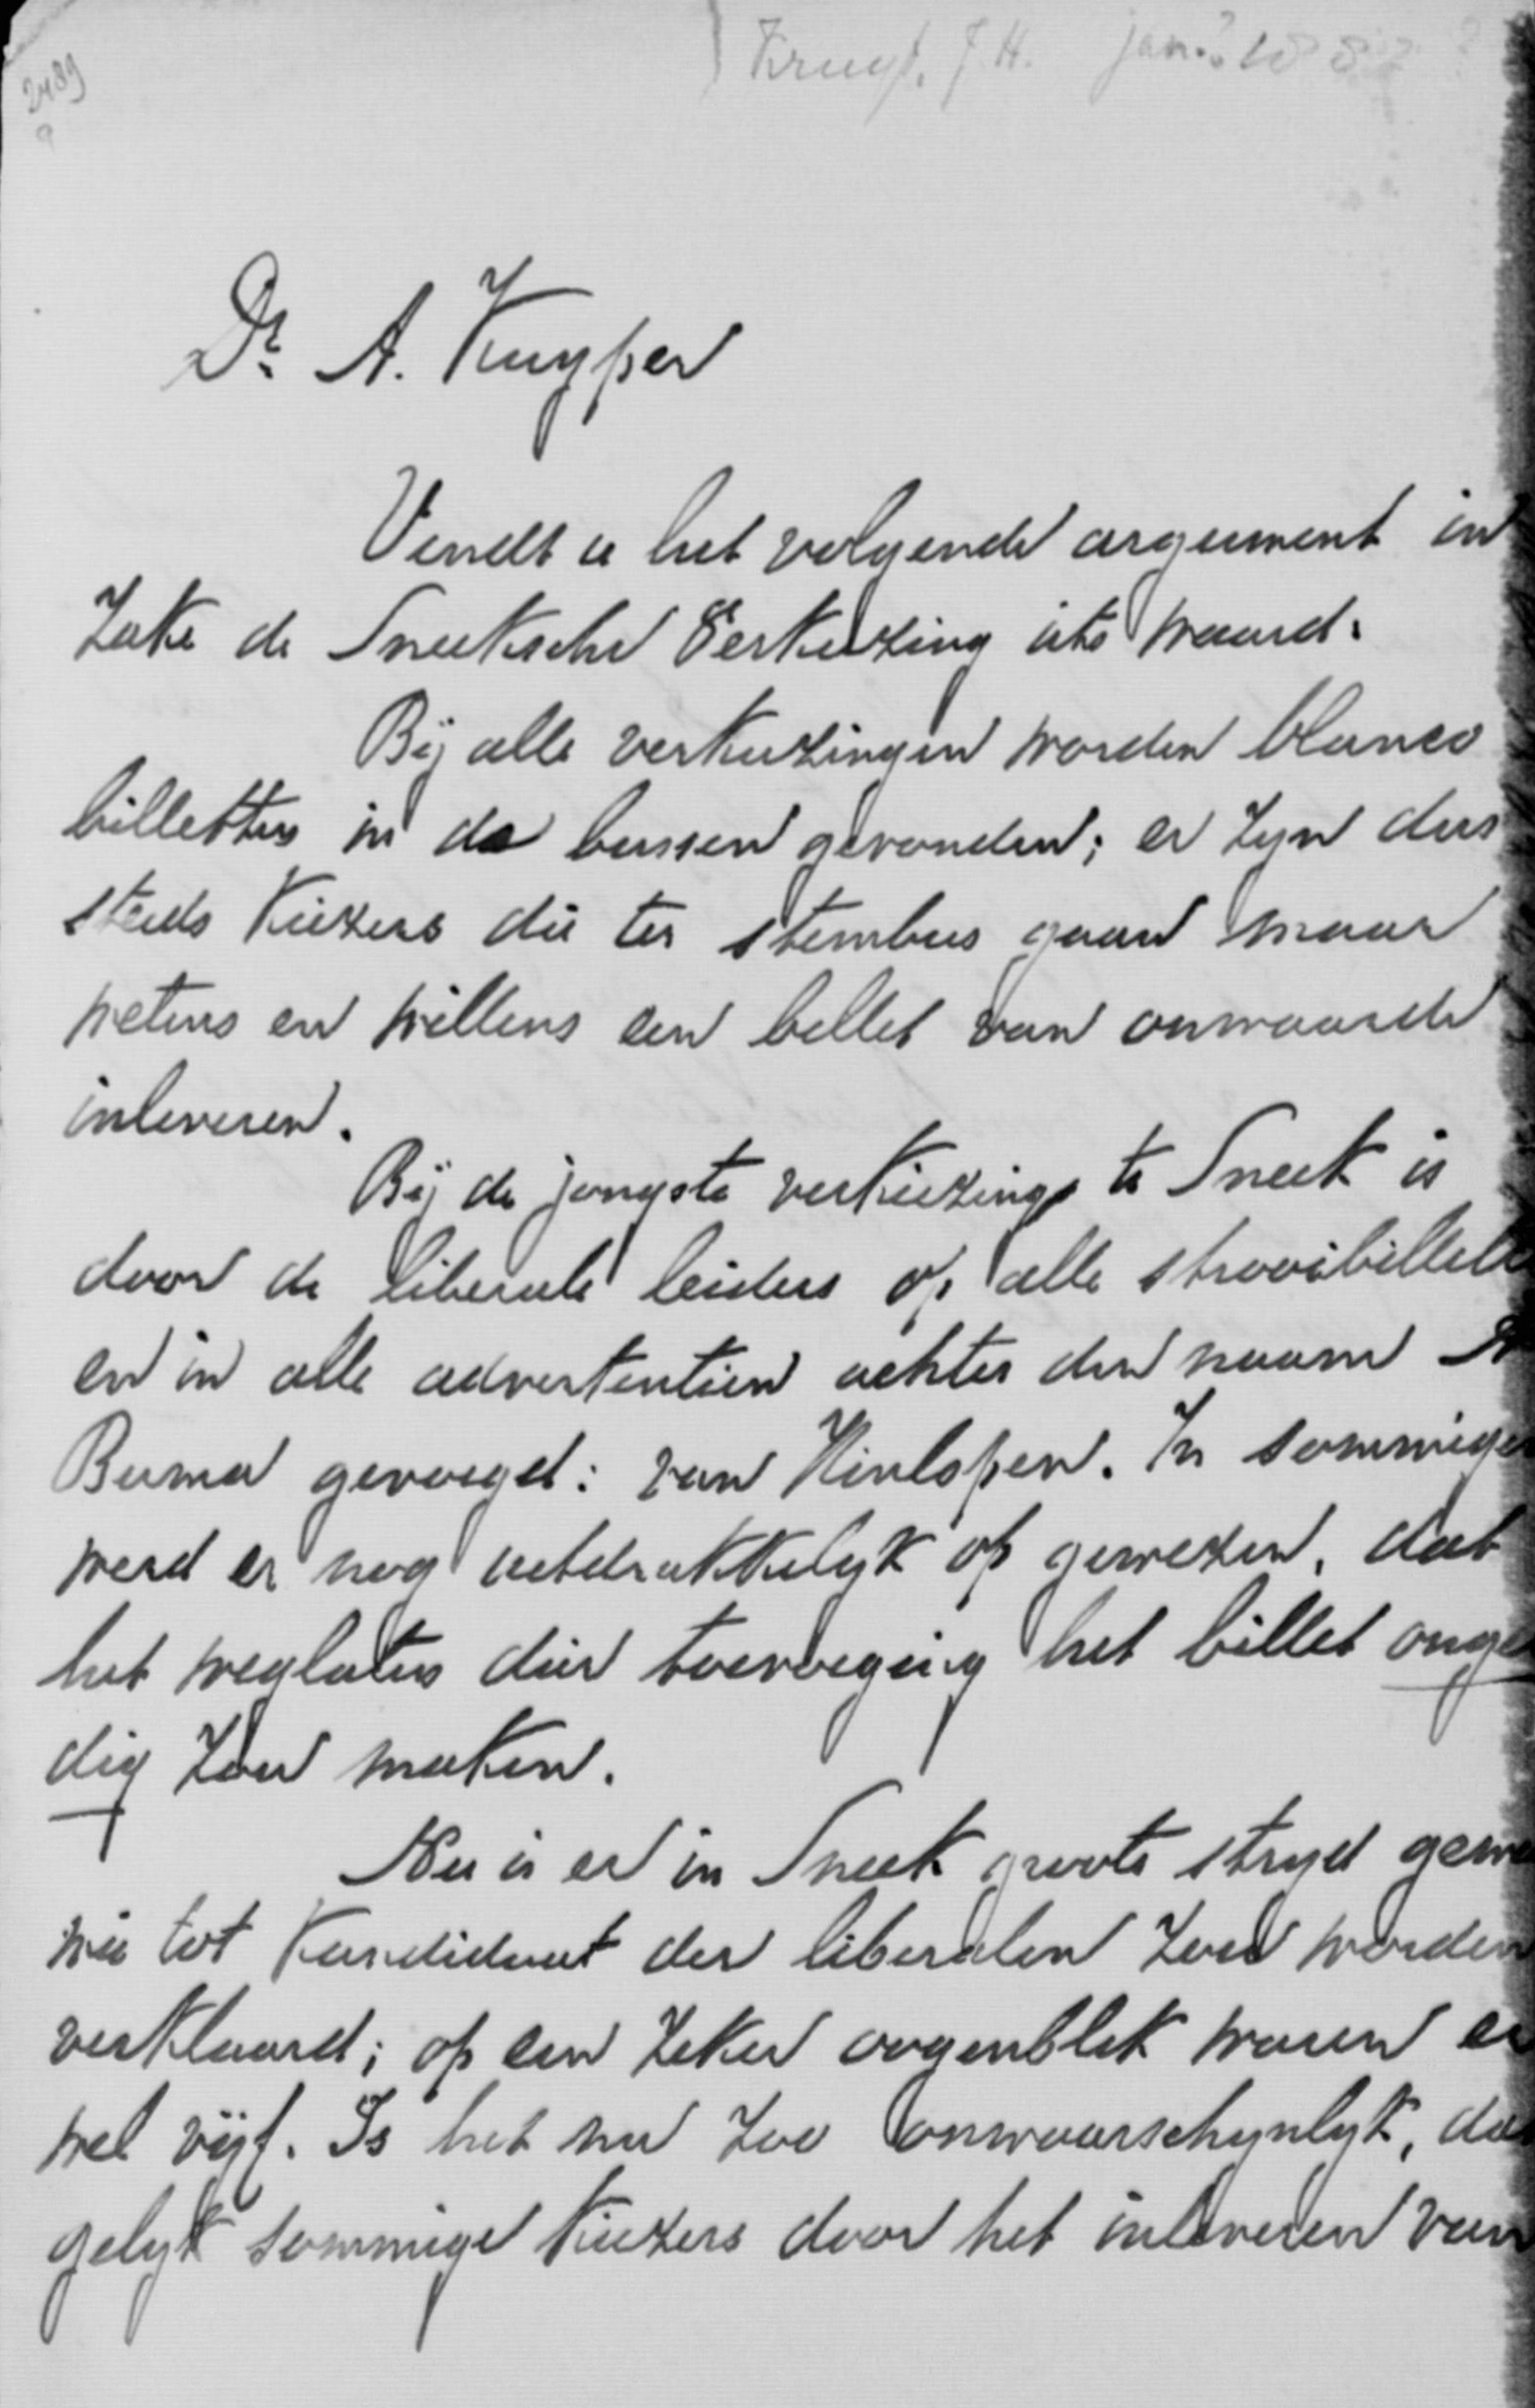 Kruyt, J. H. jan.? 188
2489
a
Dr. A. Kuyper
Vindt u het volgende argument in
Zake de Sneeksche Verkiezing iets waard.
Bij alle verkiezingen worden blanco
billetten in de bussen gevonden; er zyn dus
steeds Kiezers die ter stembus gaan maar
wetens en willens een billet van onwaarde
inleveren.
Bij de jongste verkiezing te Sneek is
door de liberale leiders op alle strooibillette
en in alle advertentien achter den naam
Buma gevoegd: van Hinlopen. In sommige
werd er nog uitdrukkelyk op gewezen, dat
het weglaten dier toevoeging het billet onge
dig zou maken.
Nu is er in Sneek groote stryd gewe
wie tot Kandidaat der liberalen zou worden
verklaard; op een zeker oogenblik waren er
wel vijf. Is het nu zoo onwaarschynlyk, da
gelyk sommige Kiezers door het inleveren van